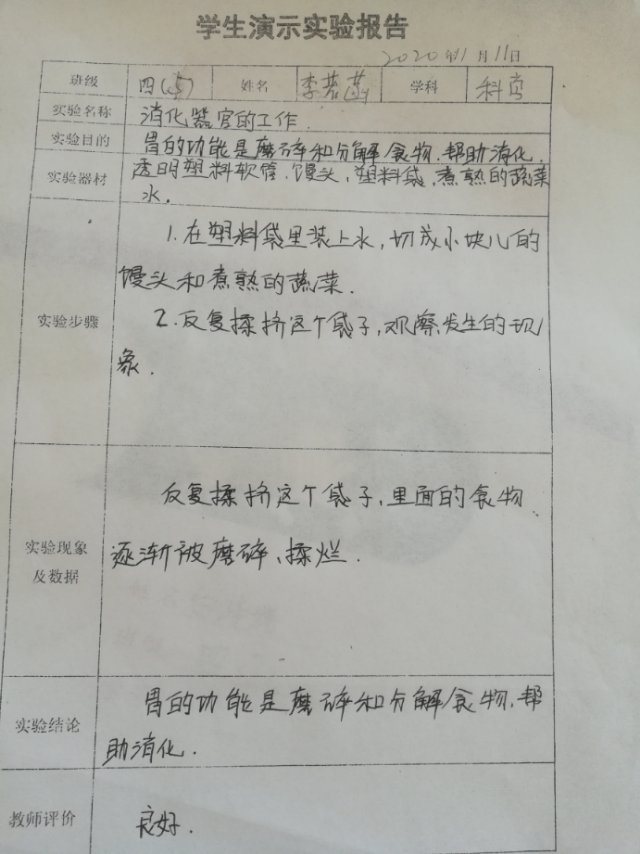 学生演示实验报告
2020年11月11日
班级 四(5) 姓名 李若菡 学科 科学
实验名称 消化器官的工作.
实验目的 胃的功能是磨碎和分解食物.帮助消化.
实验器材 透明塑料软管.馒头,塑料袋,煮熟的蔬菜
水.
1.在塑料袋里装上水,切成小块儿的
馒头和煮熟的蔬菜.
实验步骤 2.反复揉挤这个袋子,观察发生的现
象.
反复揉挤这个袋子,里面的食物
实验现象
及数据
逐渐被磨碎、揉烂.
胃的功能是磨碎和分解食物,帮
实验结论
助消化.
教师评价 良好.